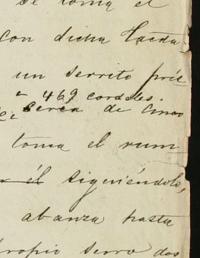 se toma el
con dicha
un serrito
469 cordeles.
cerca de
toma el rum
él siguiéndolo,
abanza hasta
propio serro dos